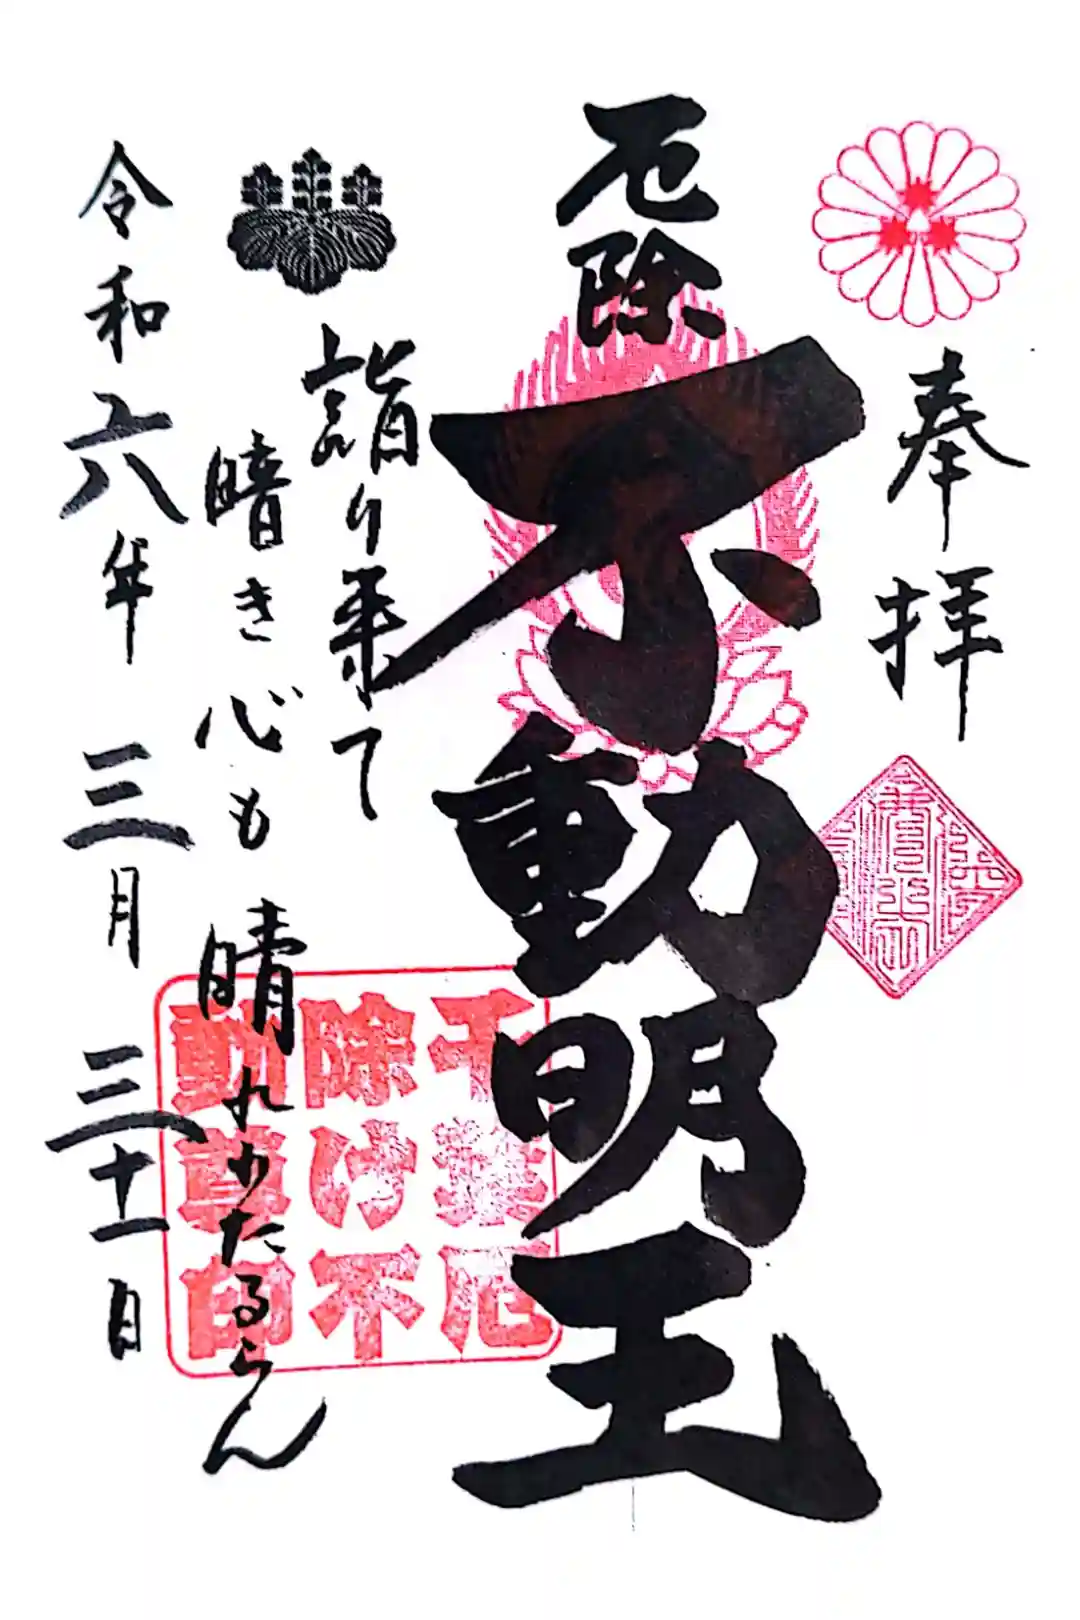 奉拝
厄除
不動明王
詣り来て
暗き心も晴れわたるらん
令和六年三月三十一日
千葉厄
除け不
動尊印